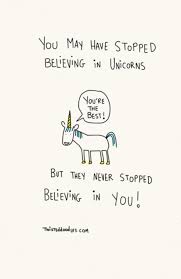 YOU MAY HAVE STOPPED
BELIEVING IN UNICORNS
YOU'RE
THE
BEST!
BUT THEY NEVER STOPPED
BELIEVING IN YOU!
Twisteddoodles.com